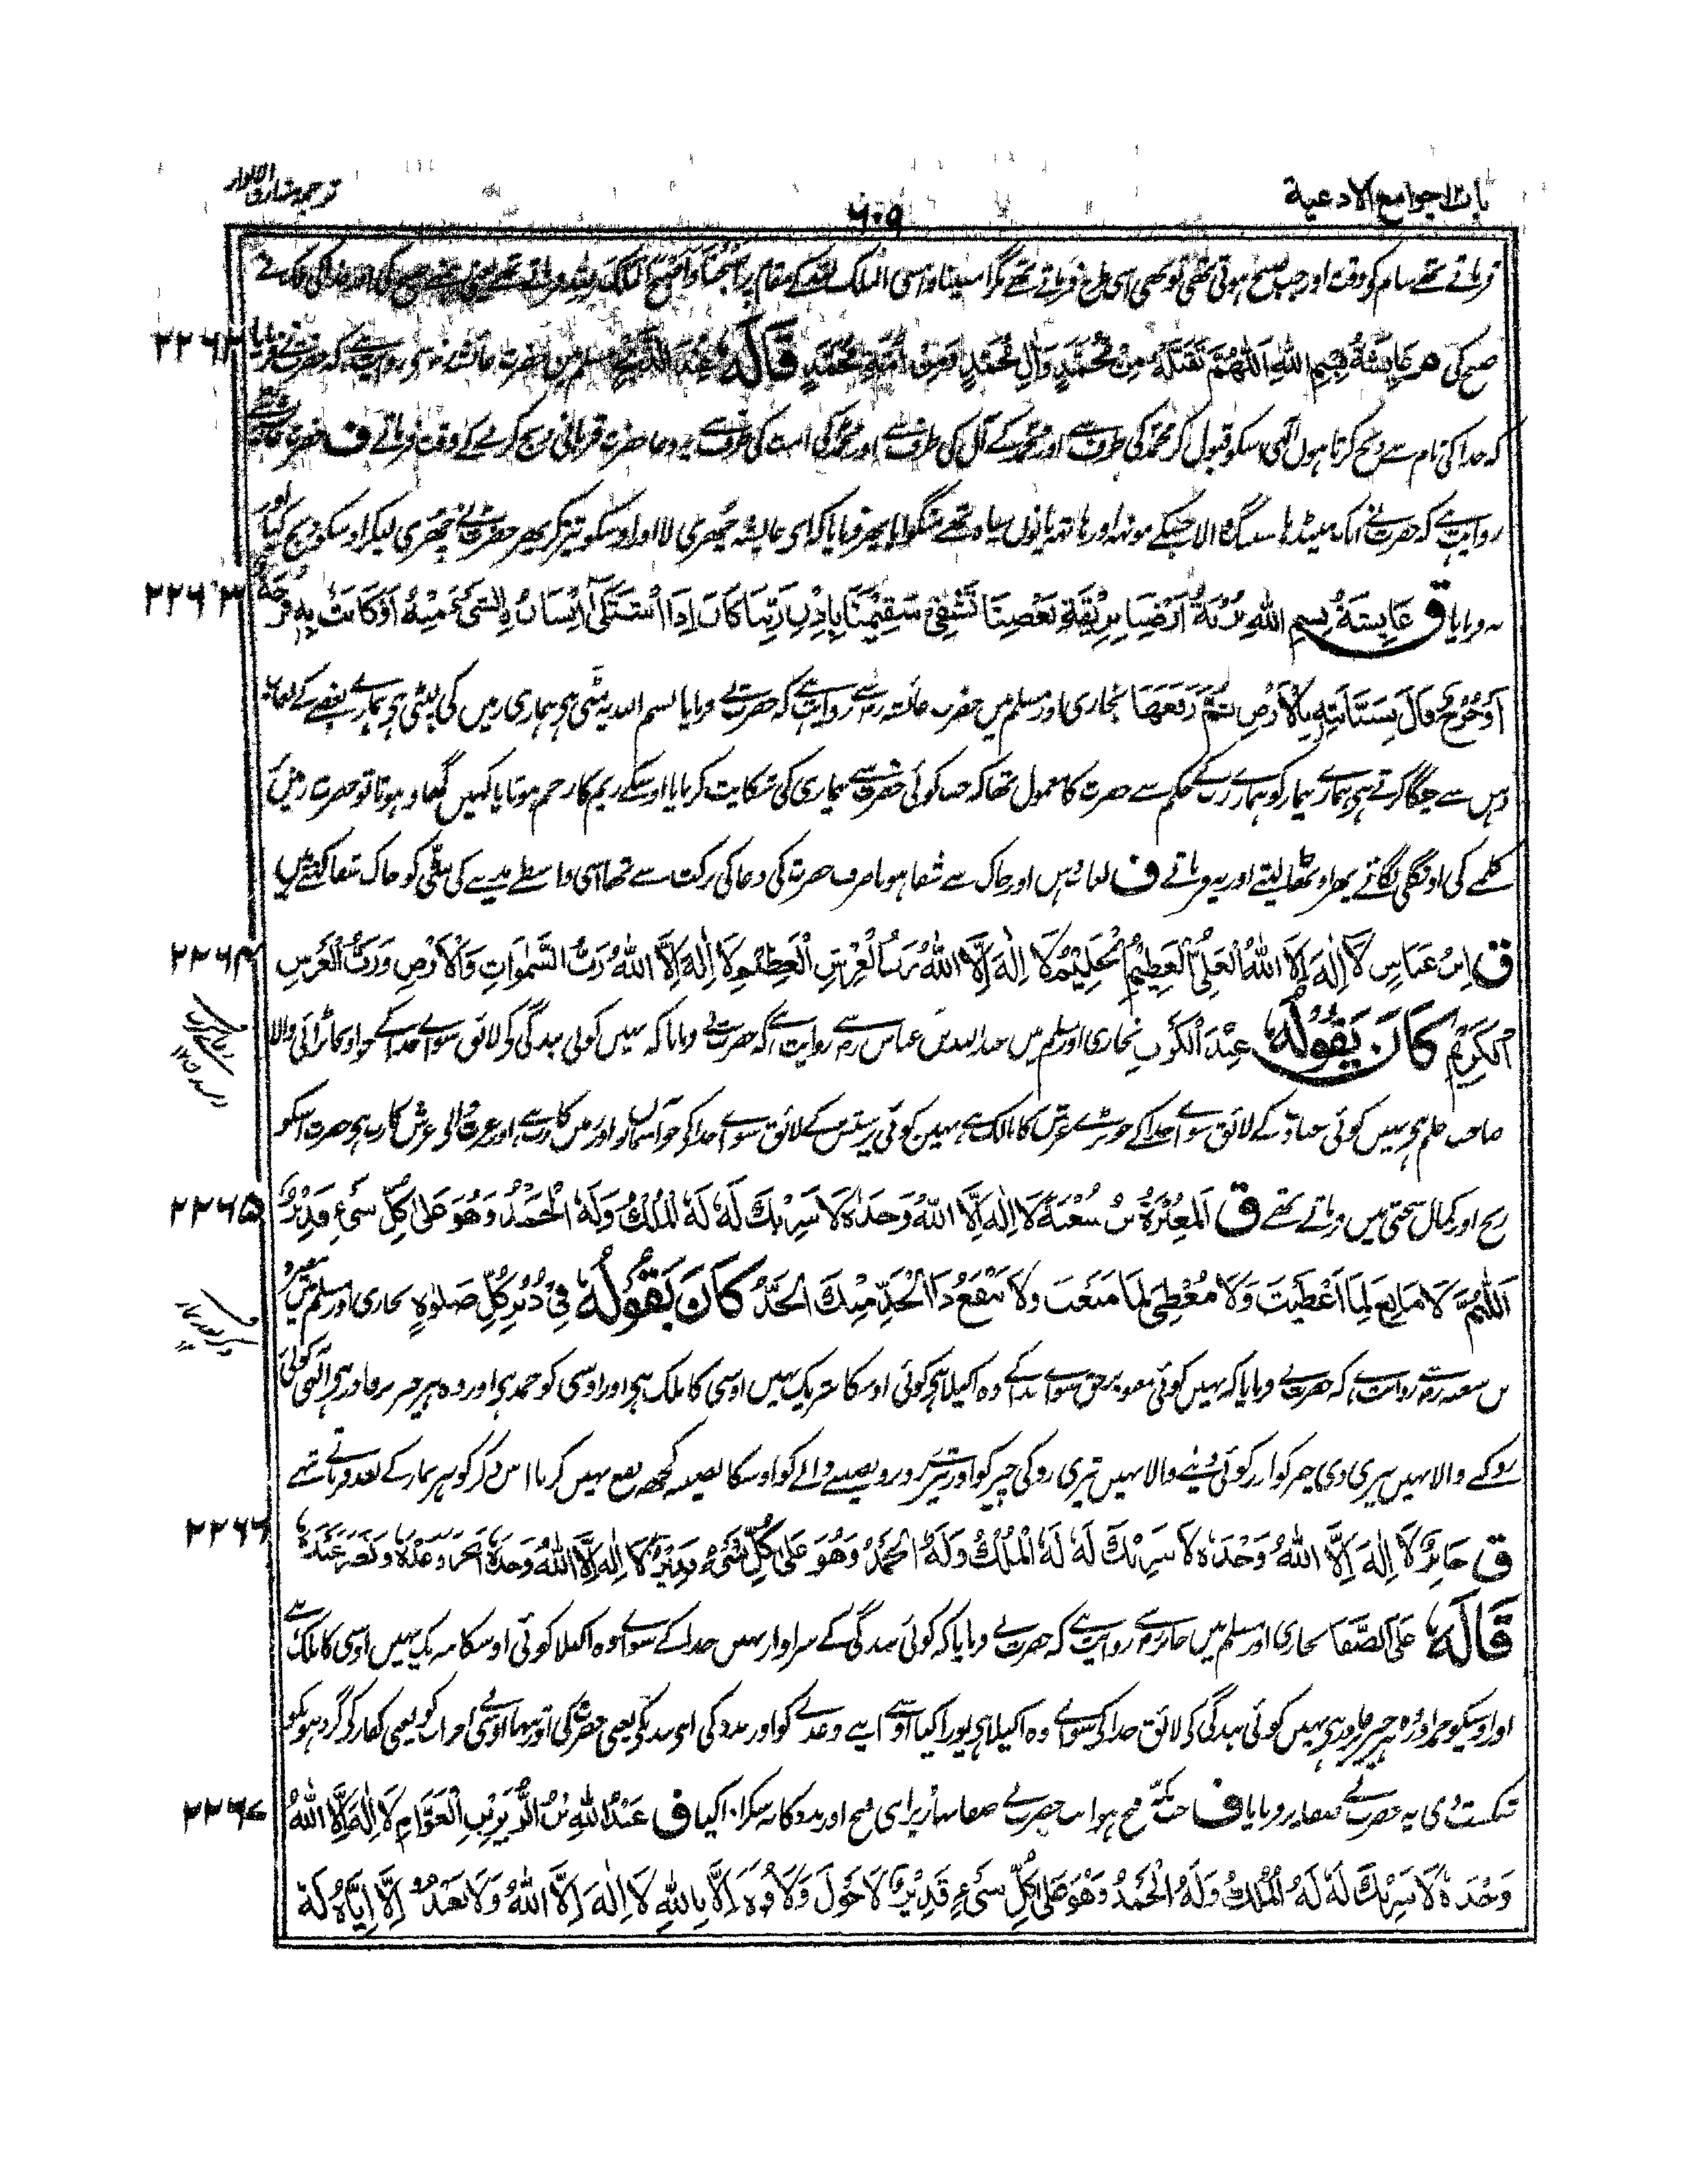 باب جوامع الادعية
٦٠٩
ترجمہ مشارق الانوار
فرماتے تھے شام کی وقت اور جب صبح ہوتی تھی تو بھی اسی طرح فرماتے تھے مگر امسینا وامسی الملک کے مقام پر اصبحنا واصبح الملک
٢٢٦٢
صبح کی هر عَايِشَةُ بِسْمِ اللهِ اَللّٰهُمَّ تَقَبَّلْ مِنْ مُحَمَّدٍ وَّاٰلِ مُحَمَّدٍ وَّمِنْ اُمَّةِ مُحَمَّدٍ قَالَهٗ عِنْدَ الذَّبْحِ مسلم میں حضرت عائشہ سے روایت ہے کہ حضرت نے فرمایا
کہ خدا کی نام سے ذبح کرتا ہوں الٰہی اسکو قبول کر محمد کی طرف سے اور محمد کے آل کی طرف سے اور محمد کی امت کی طرف سے یہ دعا حضرت قربانی ذبح کرنے کے وقت فرماتے ف
روایت ہے کہ حضرت نے ایک مینڈھا سینگ والا جسکے مونہہ اور ہاتھ پانوں سیاہ تھے منگوایا پھر فرمایا کہ ای عایشہ چھری لا اور اوسکو تیز کر پھر حضرت نے چھری لیکر اوسکو ذبح کیا اور
٢٢٦٣
یہ فرمایا ق عَايِشَةُ بِسْمِ اللهِ تُرْبَةُ اَرْضِنَا بِرِيْقَةِ بَعْضِنَا تَشْفِىْ سَقِيْمَنَا بِاِذْنِ رَبِّنَا كَانَ اِذَا اشْتَكٰى اِنْسَانٌ اِلشَّىْءَ مِنْهُ اَوْ كَانَتْ بِهٖ قَرْحَةٌ
اَوْ جُرْحٌ قَالَ بِسَبَّابَتِهٖ بِالْاَرْضِ ثُمَّ رَفَعَهَا بخاری اور مسلم میں حضرت عائشہ رض سے روایت ہے کہ حضرت نے فرمایا بسم اللہ یہ مٹی ہی ہماری زمین کی لپٹی ہی ہمارے بعضے کے لعاب
دہن سے چنگا کرتے ہی ہمارے بیمار کو ہمارے رب کے حکم سے حضرت کا معمول تھا کہ جب کوئی حضرت سے بیماری کی شکایت کرتا یا اوسکے ریم کا زخم ہوتا یا کہیں گھاو ہوتا تو حضرت زمین پر
کلمے کی اونگلی لگاتے پھر اوٹھا لیتے اور یہ فرماتے ف لعاب دہن اور خاک سے شفا ہونا صرف حضرت کی دعا کی برکت سے تھا اسی واسطے مدینے کی مٹی کو خاک شفا کہتے ہیں
٢٢٦٤
ق اِبْنُ عَبَّاسٍ لَا اِلٰهَ اِلَّا اللهُ الْعَلِىُّ الْعَظِيْمُ الْحَلِيْمُ لَا اِلٰهَ اِلَّا اللهُ رَبُّ الْعَرْشِ الْعَظِيْمِ لَا اِلٰهَ اِلَّا اللهُ رَبُّ السَّمٰوَاتِ وَالْاَرْضِ وَرَبُّ الْعَرْشِ
الْكَرِيْمِ كَانَ يَقُوْلُهٗ عِنْدَ الْكَرْبِ بخاری اور مسلم میں عبد اللہ بن عباس رض سے روایت ہے کہ حضرت نے فرمایا کہ نہیں کوئی بندگی کے لائق سواے خدا کے جو اونچا بڑائی والا
صاحب حلم ہی نہیں کوئی عبادت کے لائق سواے خدا کے جو بڑے عرش کا مالک ہے نہین کوئی پرستش کے لائق سواے خدا کو جو آسمانوں اور زمین کا رب ہے اور عزت والی عرش کا رب ہی حضرت اسکو
٢٢٦٥
رنج اور کمال سختی میں فرماتے تھے ق اَلْمُغِيْرَةُ بْنُ شُعْبَةَ لَا اِلٰهَ اِلَّا اللهُ وَحْدَهٗ لَا شَرِيْكَ لَهٗ لَهُ الْمُلْكُ وَلَهُ الْحَمْدُ وَهُوَ عَلٰى كُلِّ شَىْءٍ قَدِيْرٌ
اَللّٰهُمَّ لَا مَانِعَ لِمَا اَعْطَيْتَ وَلَا مُعْطِىَ لِمَا مَنَعْتَ وَلَا يَنْفَعُ ذَا الْجَدِّ مِنْكَ الْجَدُّ كَانَ يَقُوْلُهٗ فِىْ دُبُرِ كُلِّ صَلٰوةٍ بخاری اور مسلم میں مغیرہ
بن شعبہ رض سے روایت ہے کہ حضرت نے فرمایا کہ نہیں کوئی معبود برحق سواے خدا کے وہ اکیلا ہی کوئی اوسکا شریک نہیں اوسی کا ملک ہی اور اوسی کو حمد ہی اور وہ ہر چیز پر قادر ہی الٰہی کوئی
روکنے والا نہیں تیری دی چیز کو اور کوئی دینے والا نہیں تیری روکی چیز کو اور تیرے روبرو نصیبے والے کو اوسکا نصیبہ کچھ نفع نہیں کرتا اس ذکر کو ہر نماز کے بعد فرماتے تہے
٢٢٦٦
ق جَابِرٌ لَا اِلٰهَ اِلَّا اللهُ وَحْدَهٗ لَا شَرِيْكَ لَهٗ لَهُ الْمُلْكُ وَلَهُ الْحَمْدُ وَهُوَ عَلٰى كُلِّ شَىْءٍ قَدِيْرٌ لَا اِلٰهَ اِلَّا اللهُ وَحْدَهٗ اَنْجَزَ وَعْدَهٗ وَنَصَرَ عَبْدَهٗ
قَالَهٗ عَلَى الصَّفَا بخاری اور مسلم میں جابر رض سے روایت ہے کہ حضرت نے فرمایا کہ کوئی بندگی کے سزاوار نہیں خدا کے سواے وہ اکیلا کوئی اوسکا شریک نہیں اوسی کا ملک ہے
اور اوسیکو حمد اور وہ ہر چیز پر قادر ہی نہیں کوئی بندگی کی لائق خدا کی سواے وہ اکیلا ہی پورا کیا اوسنے اپنے وعدے کو اور مدد کی اپنی بندیکی یعنی حضرت کی اور تنہا اوسنی احزاب کو یعنی کفار کی گروہونکو
٢٢٦٧
شکست دی یہ حضرت نے صفا پر فرمایا ف جب مکہ فتح ہوا تب حضرت نے صفا پہاڑ پر اپنی فتح اور مدد کا شکرانہ کیا ق عَبْدُ اللهِ بْنُ الزُّبَيْرِ بْنِ الْعَوَّامِ لَا اِلٰهَ اِلَّا اللهُ
وَحْدَهٗ لَا شَرِيْكَ لَهٗ لَهُ الْمُلْكُ وَلَهُ الْحَمْدُ وَهُوَ عَلٰى كُلِّ شَىْءٍ قَدِيْرٌ لَا حَوْلَ وَلَا قُوَّةَ اِلَّا بِاللهِ لَا اِلٰهَ اِلَّا اللهُ وَلَا نَعْبُدُ اِلَّا اِيَّاهُ لَهُ